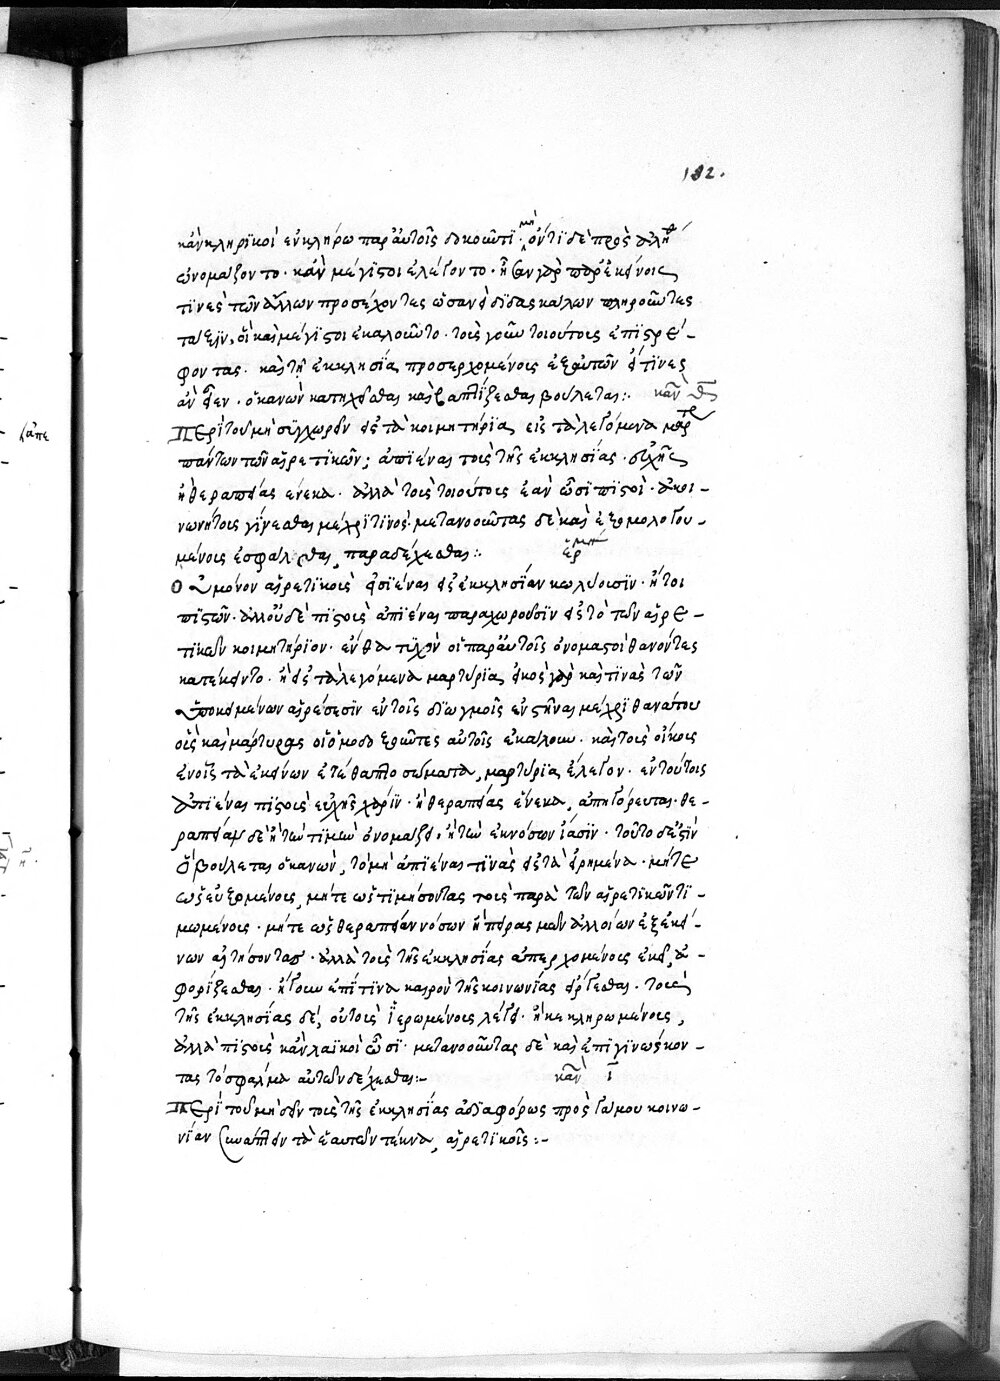 182.
κἂν κληρϊκοὶ ἐν κλήρω παρ' αὐτοῖς δοκοῦντϊ· μὴ ὄντϊ δὲ πρὸς ἀλήθ
ὠνομάζοντο· κἂν μέγϊστοι ἐλέγοντο· ἦσαν γὰρ παρ' ἐκείνοις
τϊνὲς τῶν ἄλλων προσέχοντες ὡσανεὶ διδασκάλων πληροῦντες
τάξϊν, οἳ καὶ μέγϊστοι ἐκαλοῦντο· τοὺς γοῦν τοιούτους ἐπϊστρέ-
φοντας· καὶ τῇ ἐκκλησίᾳ προσερχομένους ἐξ αὐτῶν εἴ τινες
ἂν εἶεν· ὁ κανὼν κατηχεῖσθαι καὶ βαπτίζεσθαι βούλεται:· καν θ
Περὶ τοῦ μὴ συγχωρεῖν εἰς τὰ κοιμητήρϊα, εἰς τὰ λεγόμενα μαρτ
πάντων τῶν αἱρετϊκῶν; ἀπϊέναι τοὺς τῆς ἐκκλησίας· εὐχῆς
ἢ θεραπείας ἕνεκα· ἀλλὰ τοὺς τοιούτους ἐὰν ὦσϊ πϊστοὶ· ἀκοι-
νωνήτους γίνεσθαι μέχρϊ τϊνός· μετανοοῦντας δὲ καὶ ἐξομολογου-
μένους ἐσφάλθαι, παραδέχεσθαι:· ἑρμη
Οὐ μόνον αἱρετϊκοὺς εἰσϊέναι εἰς ἐκκλησίαν κωλύουσϊν· ἤτοι
πϊστῶν· ἀλλ' οὐδὲ πϊστοὺς ἀπϊέναι παραχωροῦσϊν εἰς τὸ τῶν αἱρε-
τϊκῶν κοιμητήρϊον· ἔνθα τϋχὸν οἱ παρ' αὐτοῖς ὀνομαστοὶ θανόντες
κατέκειντο· ἢ εἰς τὰ λεγόμενα μαρτύρϊα, εἰκὸς γὰρ καὶ τϊνὰς τῶν
ὑποκειμένων αἱρέσεσϊν ἐν τοῖς δϊωγμοῖς ἐνστῆναι μέχρϊ θανάτου
οὓς καὶ μάρτυρας οἱ ὁμοδοξοῦντες αὐτοῖς ἐκάλουν· καὶ τοὺς οἴκους
ἐν οἷς τὰ ἐκείνων ἐτέθαπτο σώματα, μαρτύρϊα ἔλεγον· ἐν τούτοις
ἀπϊέναι πϊστοὺς εὐχῆς χάρϊν· ἢ θεραπείας ἕνεκα, ἀπηγόρευται· θε-
ραπείαν δὲ ἢ τὴν τϊμὴν ὀνομάζει, ἢ τὴν ἐκ νόσων ἴασϊν· τοῦτο δ' ἐστὶν
ὃ βούλεται ὁ κανὼν, τὸ μὴ ἀπϊέναι τϊνὰς εἰς τὰ εἰρημένα· μήτε
ὡς εὐξομένους, μήτε ὡς τϊμήσοντας τοὺς παρὰ τῶν αἱρετϊκῶν τϊ-
μωμένους· μήτε ὡς θεραπείαν νόσων ἢ πήρας μελῶν ἀλλοίων ἐξ ἐκεί-
νων αἰτήσοντας· ἀλλὰ τοὺς τῆς ἐκκλησίας ἀπερχομένους ἐκεῖ, ἀ-
φορίζεσθαι· ἤγουν ἐπί τϊνα καιρὸν τῆς κοινωνίας εἴργεσθαι· τοὺς
τῆς ἐκκλησίας δὲ, οὐ τοὺς ἱερωμένους λέγει· ἢ κεκληρωμένους,
ἀλλὰ πϊστοὺς κἂν λαϊκοὶ ὦσϊ· μετανοοῦντας δὲ καὶ ἐπϊγϊνώσκον-
τας τὸ σφάλμα αὐτῶν δέχεσθαι:- καν ι
Περὶ τοῦ μὴ δεῖν τοὺς τῆς ἐκκλησίας ἀδϊαφόρως πρὸς γάμου κοινω-
νίαν συνάπτειν τὰ ἑαυτῶν τέκνα, αἱρετϊκοῖς:-